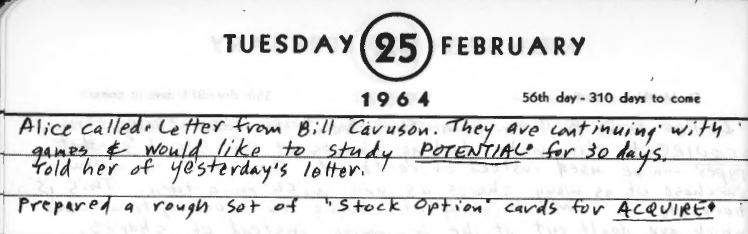 TUESDAY 25 FEBRUARY
1964 56th day - 310 days to come
Alice called. Letter from Bill Caruson. They are continuing with
games & would like to study POTENTIAL for 30 days.
Told her of yesterday's letter.
Prepared a rough set of "Stock Option" cards for ACQUIRE.